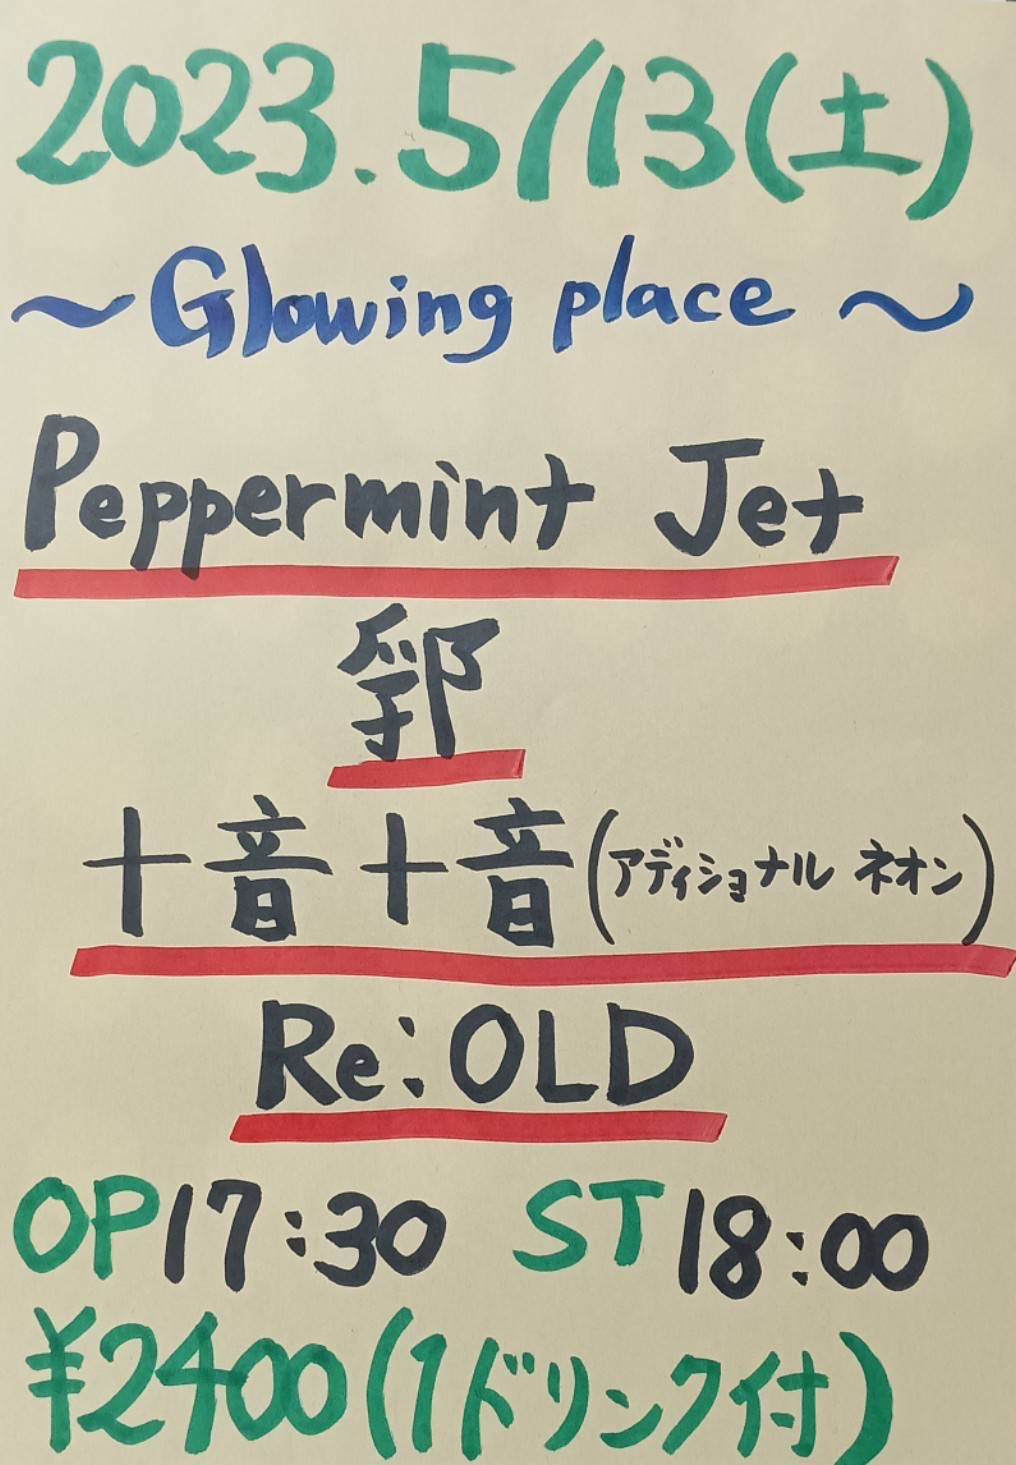 2023.5/13(土)
～Glowing place～
Peppermint Jet
郛
十音十音(アディショナル ネオン)
Re:OLD
OP17:30 ST18:00
¥2400(1ドリンク付)